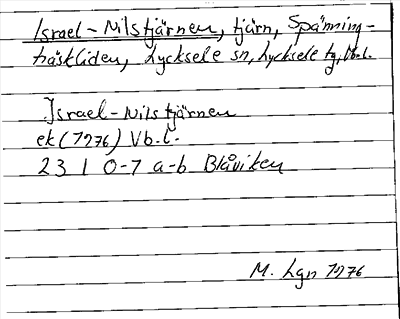 Israel-Nilstjärnen, tjärn, Spänning-
träskliden, Lycksele sn, Lycksele tg, Vb.l.
Israel-Nilstjärnen
ek (1976) Vb.l.
23 I 0-7 a-b Blåviken
M. Lgn 1976